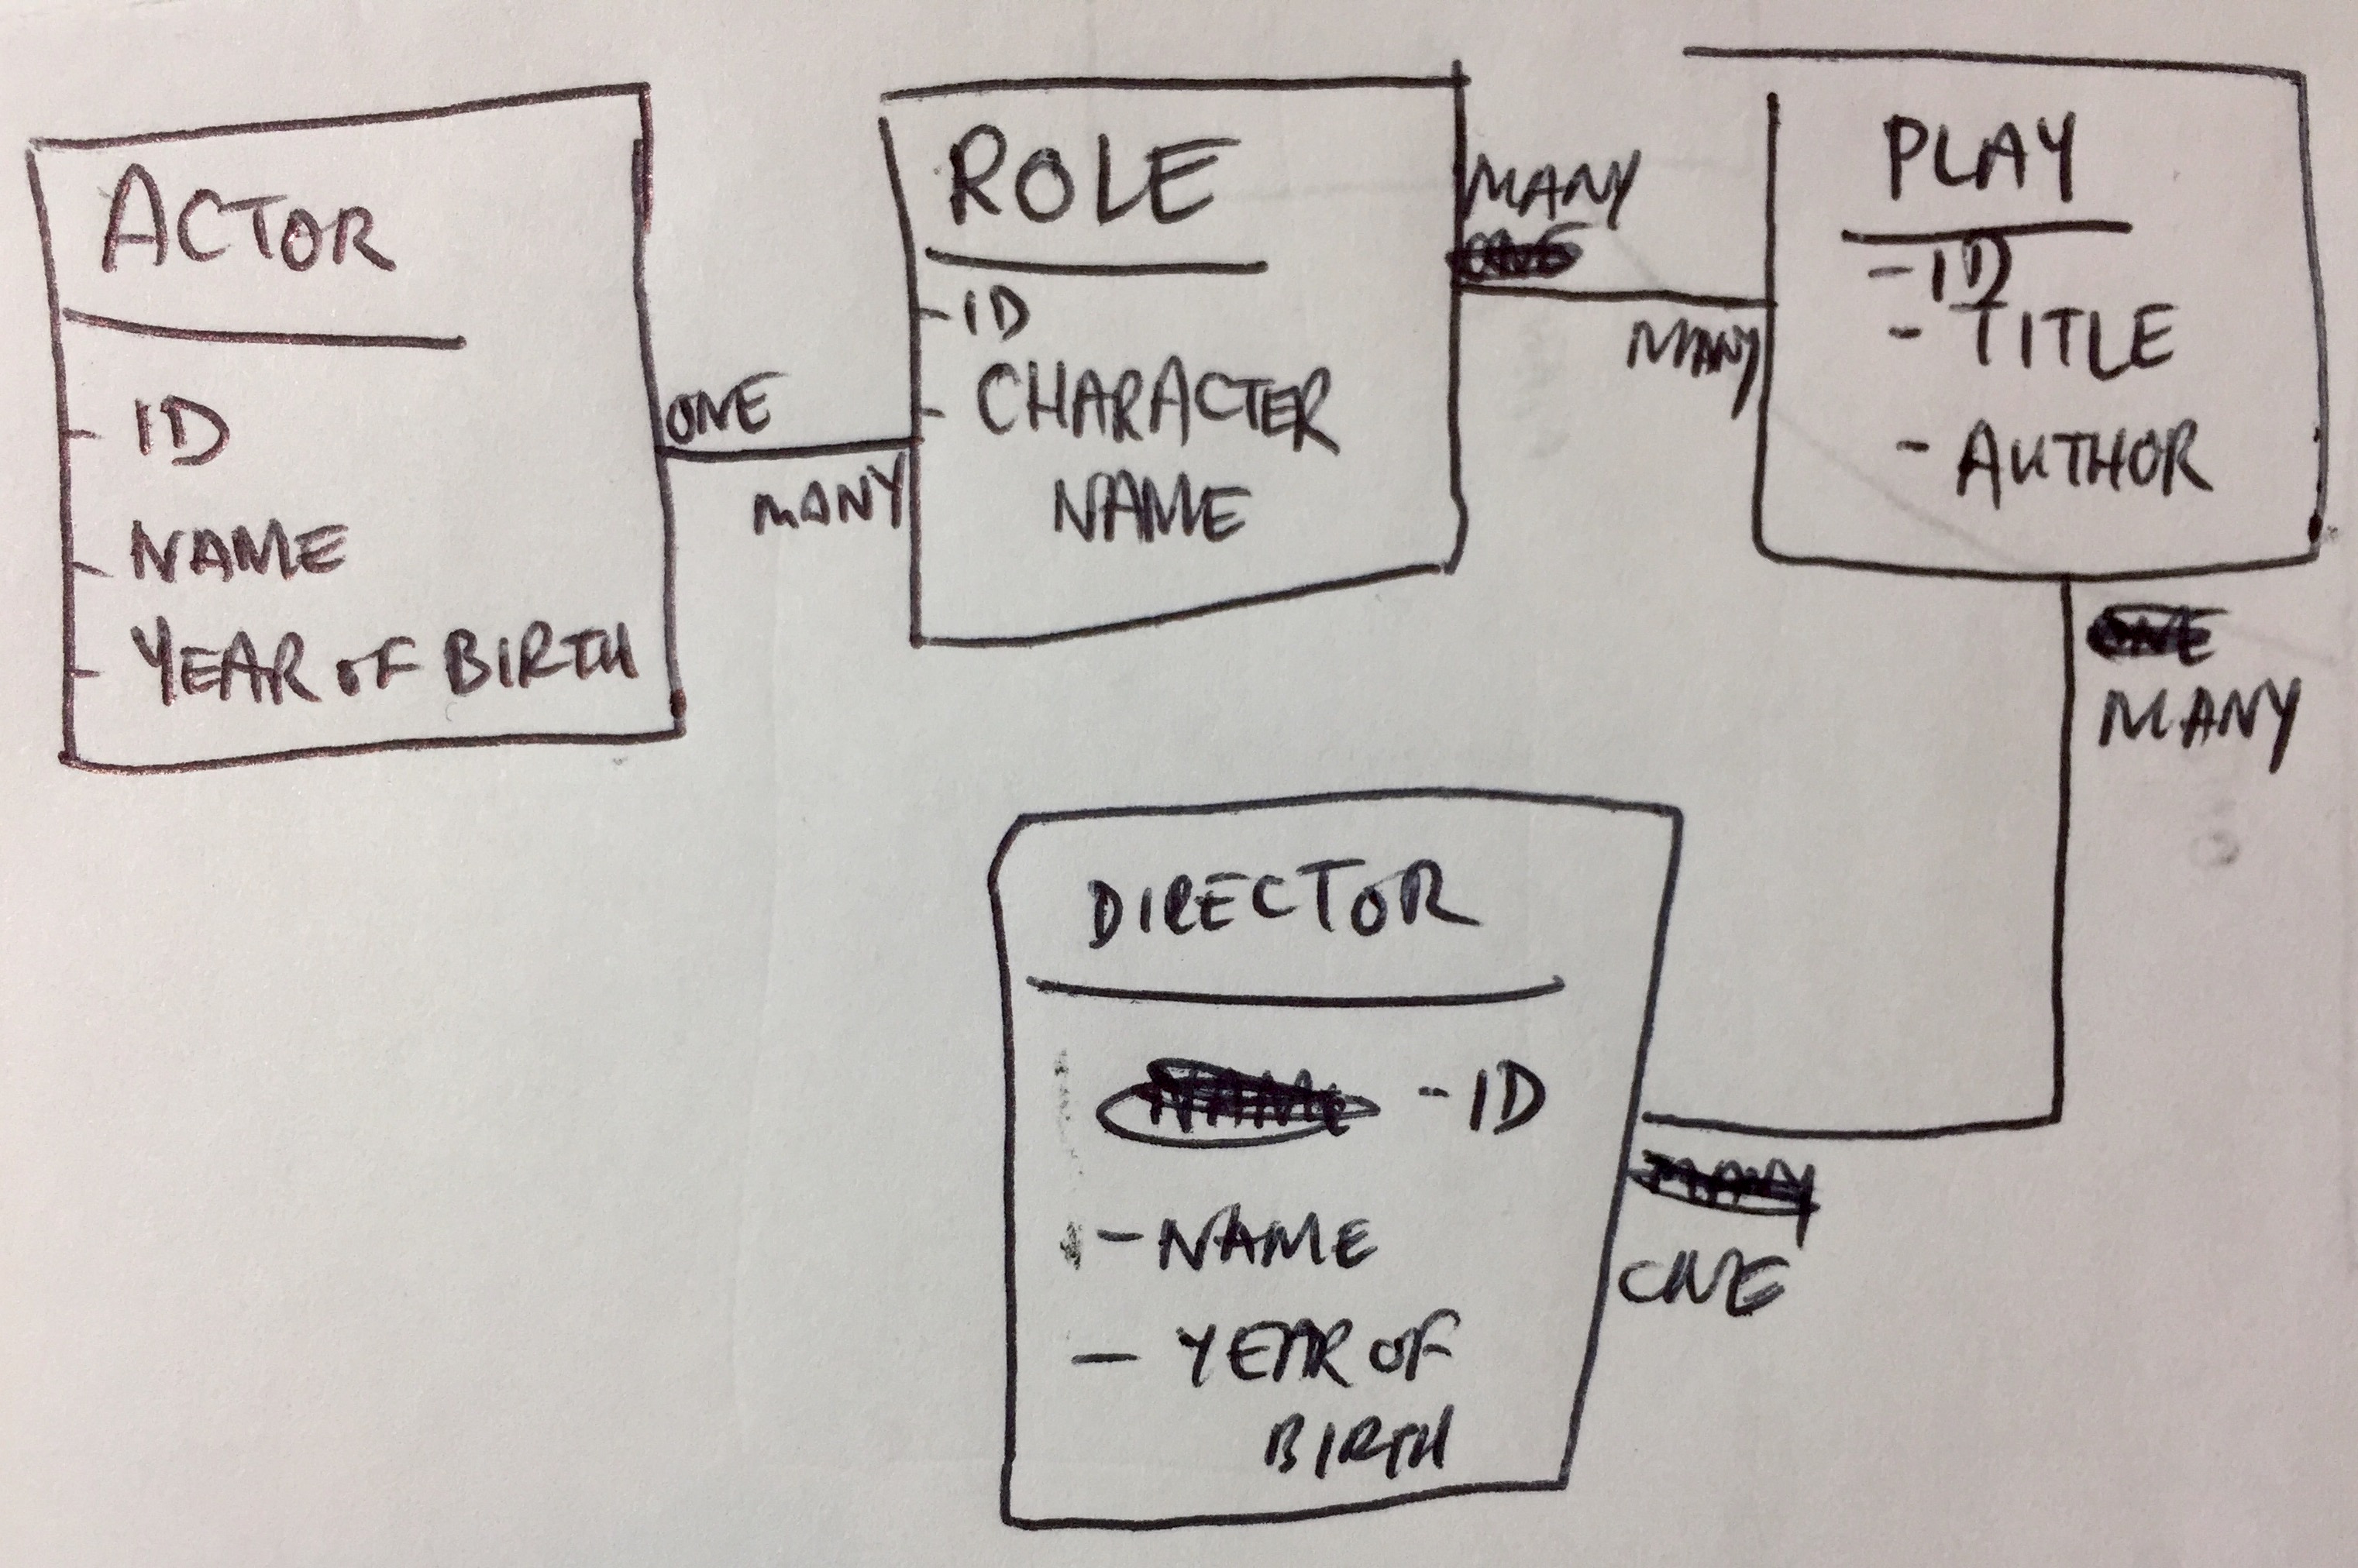 ACTOR
- ID
- NAME
- YEAR OF BIRTH
ONE
MANY
ROLE
- ID
- CHARACTER
NAME
MANY
ONE
MANY
PLAY
- ID
- TITLE
- AUTHOR
ONE
MANY
DIRECTOR
NAME - ID
- NAME
- YEAR OF
BIRTH
MANY
ONE